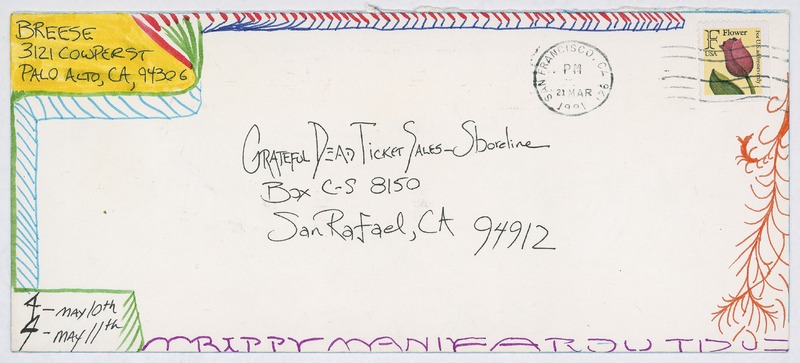 BREESE
3121 COWPER ST
PALO ALTO, CA, 94306
SAN FRANCISCO, CA
PM
21 MAR
1991
F
Flower
USA
For U.S. addresses only
GRATEFUL DEAD TICKET SALES-Shoreline
Box C-S 8150
San Rafael, CA 94912
4 - MAY 10th
4 - MAY 11th